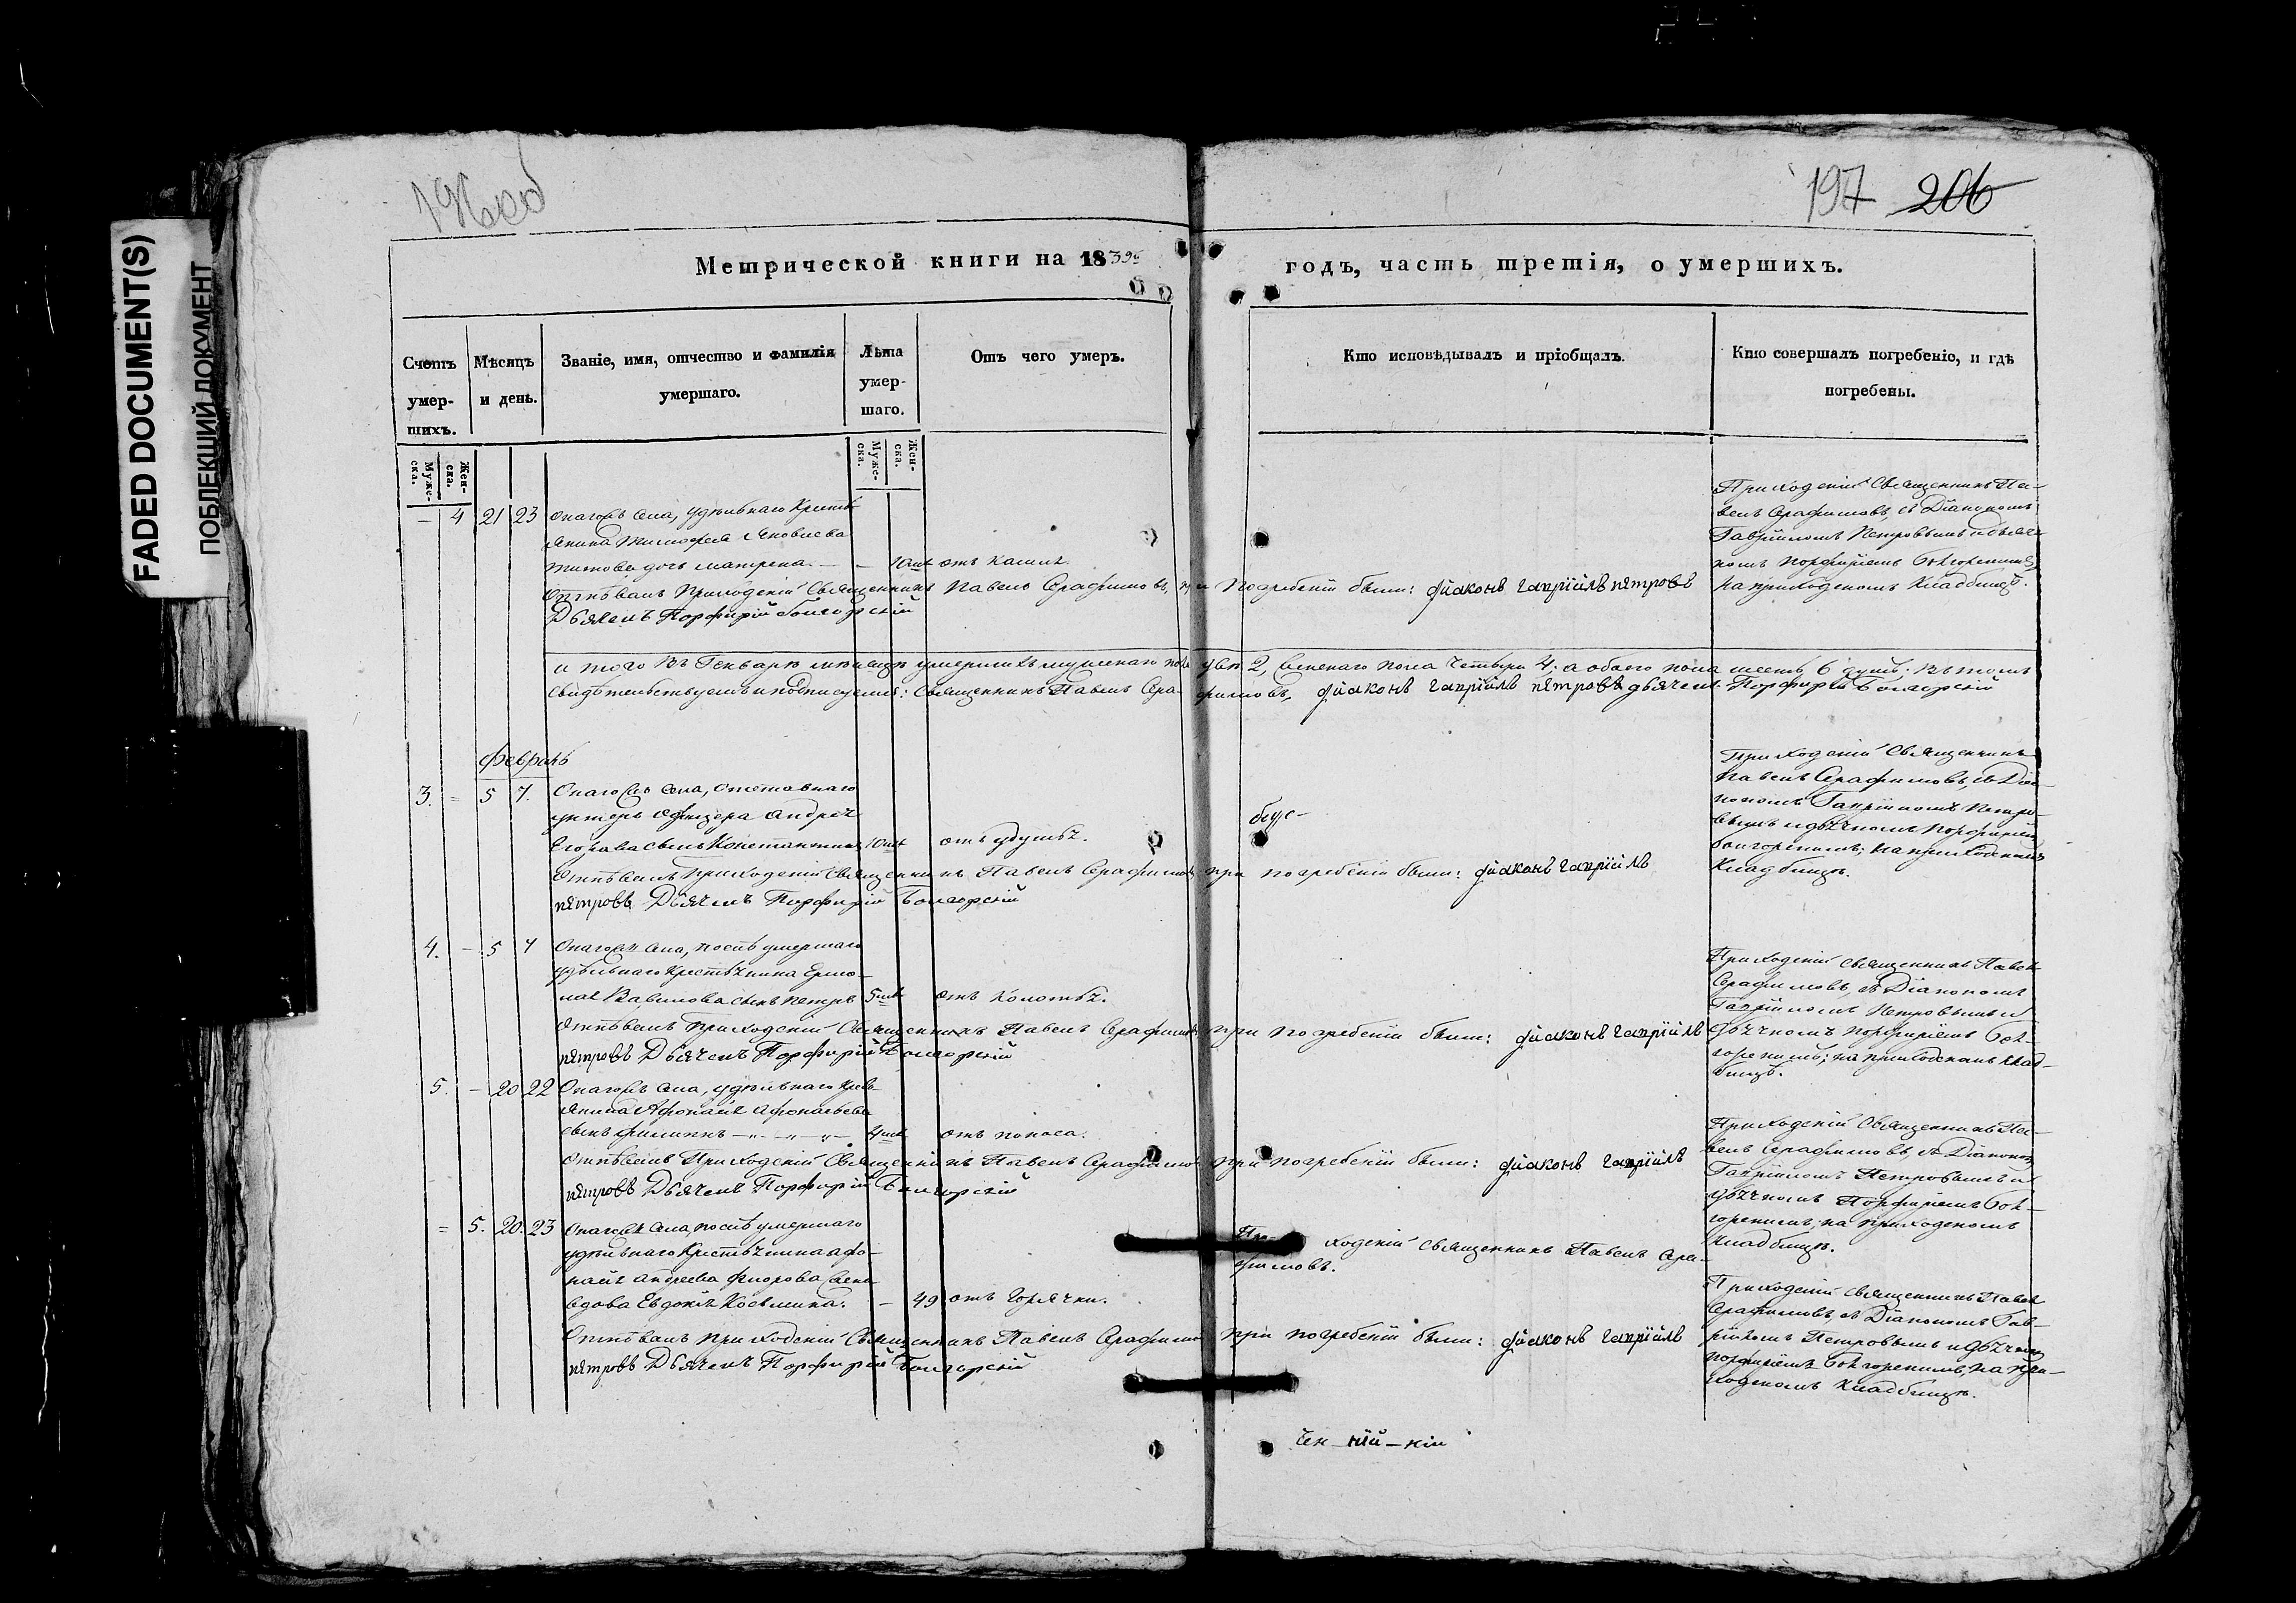 FADED DOCUMENT(S)
ПОБЛЕКШИЙ ДОКУМЕНТ
196об
197 206
Метрической книги на 1839й
годъ, часть третія, о умершихъ.
Счетъ умер-
шихъ.
Мѣсяцъ
и день.
Званіе, имя, отчество и фамилія
умершаго.
Лѣта
умер-
шаго.
Отъ чего умеръ.
Кто исповѣдывалъ и пріобщалъ.
Кто совершалъ погребеніе, и гдѣ
погребены.
Муже-
ска.
Жен-
ска.
Муже-
ска.
Жен-
ска.
— 4 21 23 Онагожъ села, удѣльнаго Кресть-
янина Тимофея Яковлева
Титова дочь Матрена. — — отъ кашля.
Отпѣвалъ Приходскій Священникъ Павелъ Серафимовъ, при погребеніи были: діаконъ гавріилъ петровъ
Дьячекъ Порфирій Болгорскій
Приходскій Священникъ Па-
велъ Серафимовъ, съ Діакономъ
Гавріиломъ Петровымъ и дьяч-
комъ Порфиріемъ Болгорскимъ
на приходскомъ Кладбищѣ.
и того въ Генварѣ мѣсяцѣ умершихъ мужескаго пола два 2, женскаго пола четыре 4; а обоего пола шесть 6 душъ; въ томъ
свидѣтельствуемъ и подписуемъ: Священникъ Павелъ Сера- фимовъ, діаконъ гавріилъ петровъ дьячекъ Порфирій Болгорскій
Февраль
3. = 5 7. Онагожъ села, отставнаго
унтеръ офицера Андрея
Егорова сынъ Константинъ отъ удушья.
безъ-
Отпѣвалъ Приходскій Священникъ Павелъ Серафимовъ, при погребеніи были: діаконъ гавріилъ
петровъ Дьячекъ Порфирій Болгорскій
Приходскій Священникъ
Павелъ Серафимовъ, съ Діа-
кономъ Гавріиломъ Петро-
вымъ и дьячкомъ Порфиріемъ
Болгорскимъ, на приходскомъ
Кладбищѣ.
4. — 5 7 Онагожъ села, послѣ умершаго
удѣльнаго Крестьянина Ермо-
лая Вавилова сынъ Петръ отъ колотья.
Отпѣвалъ Приходскій Священникъ Павелъ Серафимовъ при погребеніи были: діаконъ гавріилъ
петровъ Дьячекъ Порфирій Болгорскій
Приходскій Священникъ Павелъ
Серафимовъ, съ Діакономъ
Гавріиломъ Петровымъ и
дьячкомъ Порфиріемъ Бол-
горскимъ; на приходскомъ Клад-
бищѣ.
5. — 20 22 Онагожъ села, удѣльнаго Кресть-
янина Афонасья Афонасьева
сынъ Филиппъ отъ поноса.
Отпѣвалъ Приходскій Священникъ Павелъ Серафимовъ при погребеніи были: діаконъ гавріилъ
петровъ Дьячекъ Порфирій Болгорскій
Приходскій Священникъ Па-
велъ Серафимовъ, съ Діакономъ
Гавріиломъ Петровымъ и
дьячкомъ Порфиріемъ Бол-
горскимъ, на приходскомъ
Кладбищѣ.
= 5. 20. 23 Онагожъ села, послѣ умершаго
удѣльнаго Крестьянина Афо-
насья Андреева жена
вдова Евдокія Косьмина. — 49 отъ горячки.
Приходскій Священникъ Павелъ Сера-
фимовъ.
Отпѣвалъ Приходскій Священникъ Павелъ Серафимовъ при погребеніи были: діаконъ гавріилъ
петровъ Дьячекъ Порфирій Болгорскій
Приходскій Священникъ Павелъ
Серафимовъ, съ Діакономъ Гав-
ріиломъ Петровымъ и дьячкомъ
Порфиріемъ Болгорскимъ, на при-
ходскомъ Кладбищѣ.